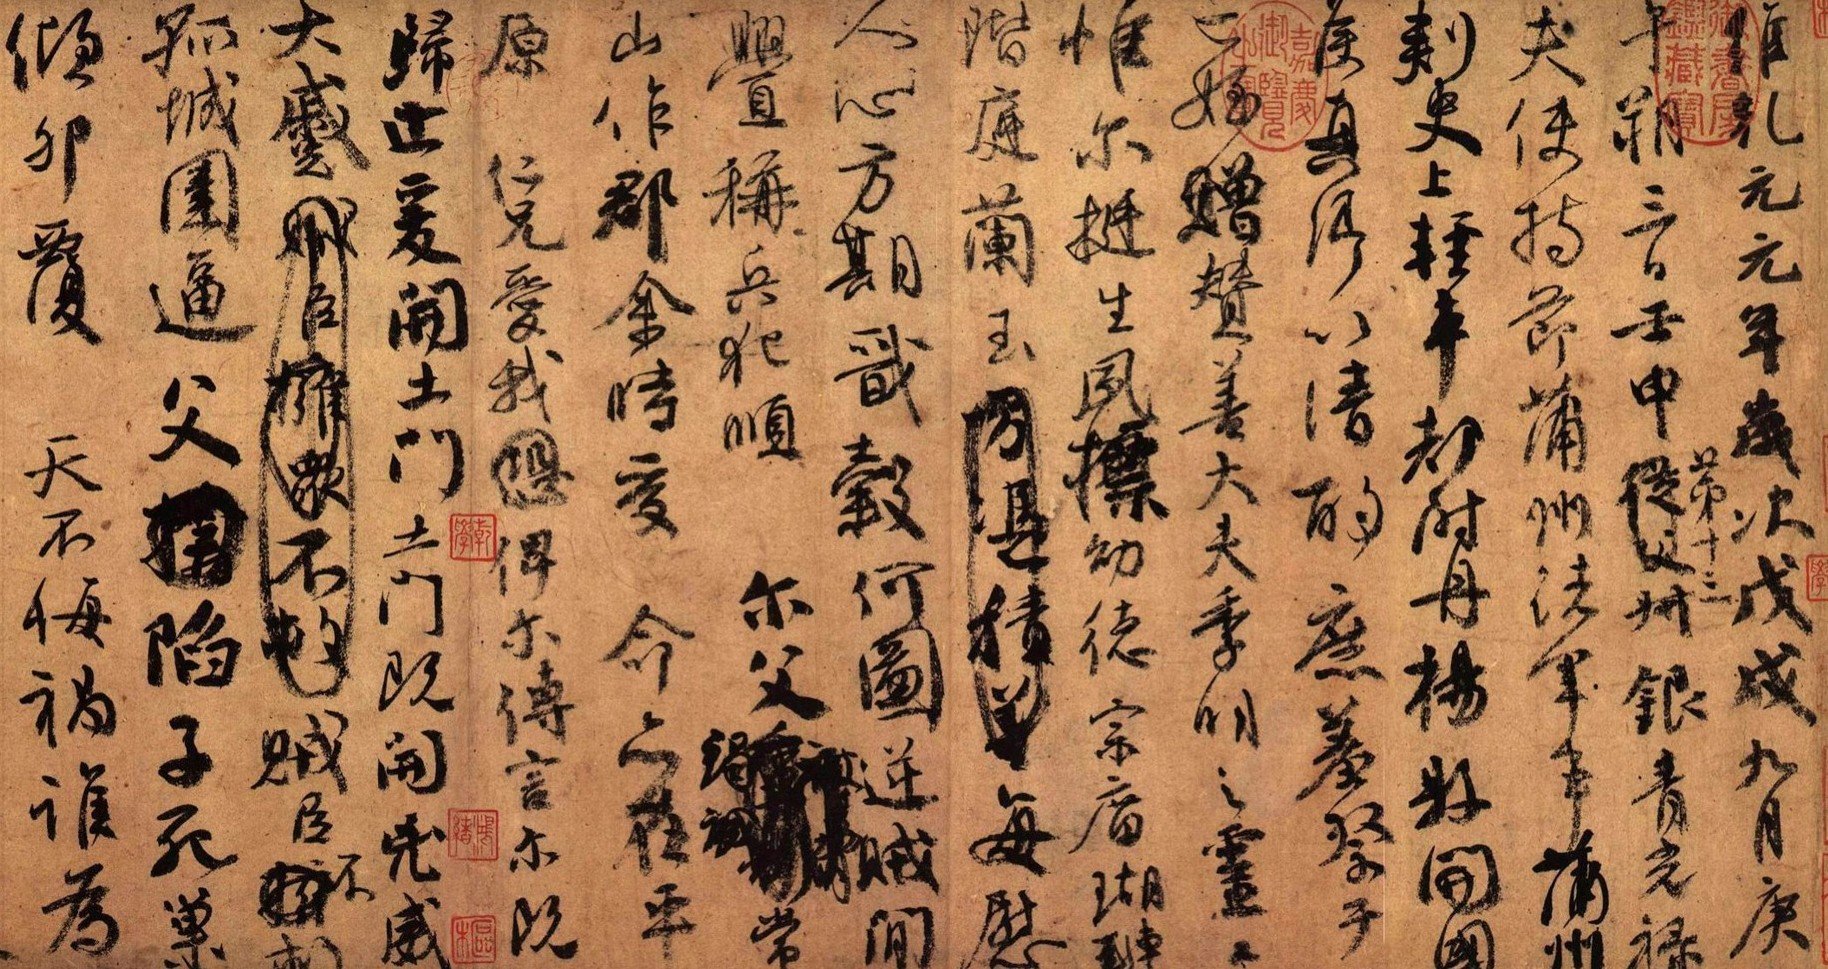 維乾元元年歲次戊戌九月庚
午朔三日壬申從父
第十三
銀青光祿
夫使持節蒲州諸軍事蒲州
刺史上輕車都尉丹楊縣開國
侯真卿以清酌庶羞祭于
亡姪贈贊善大夫季明之靈
惟爾挺生夙標幼德宗廟瑚璉
階庭蘭玉
每慰
人心方期戩穀何圖逆賊閒
釁稱兵犯順
爾父
竭誠
常
山作郡余時受
命亦在平
原
仁兄愛我
俾爾傳言爾既
歸止爰開土門土門既開兇威
大蹙
賊臣不
孤城圍逼
父
陷子死巢
傾卵覆
天不悔禍誰為